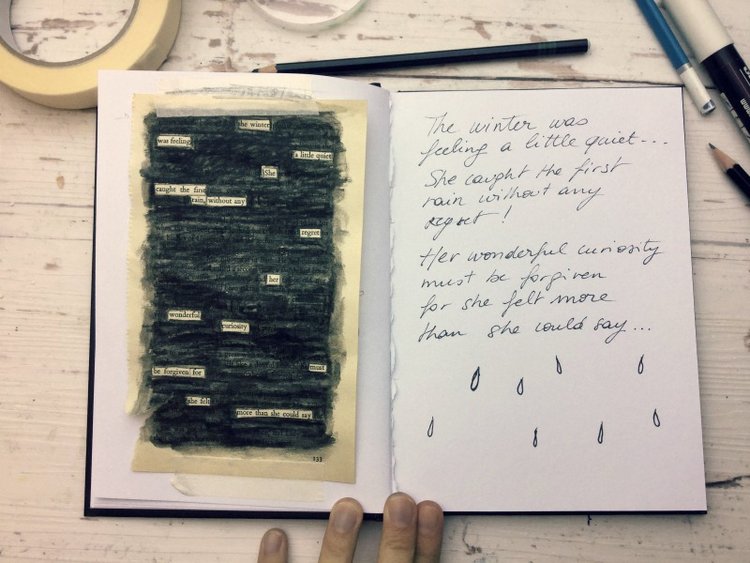 the winter
was feeling
a little quiet
She
caught the first
rain, without any
regret
her
wonderful
curiosity
must
be forgiven for
she felt
more than she could say
133
The winter was
feeling a little quiet...
She caught the first
rain without any
regret!
Her wonderful curiosity
must be forgiven
for she felt more
than she could say...